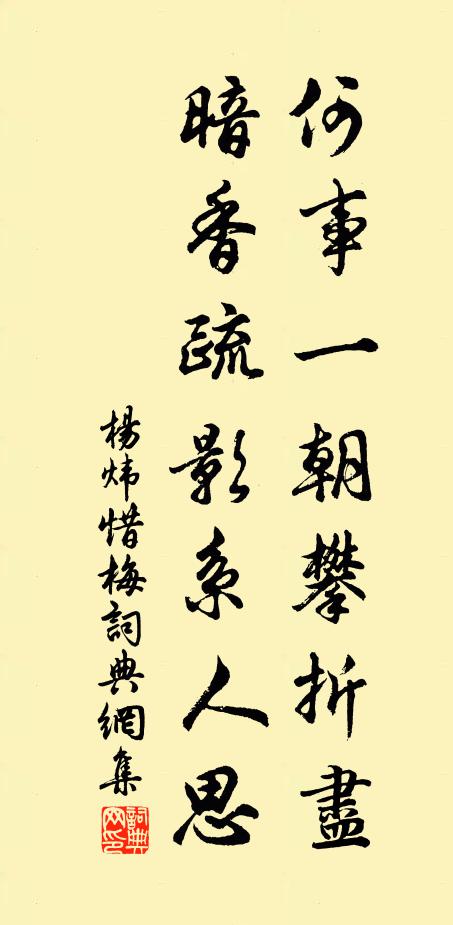 何事一朝攀折盡
暗香疏影系人思
楊炜惜梅詞典網集
詞典網印